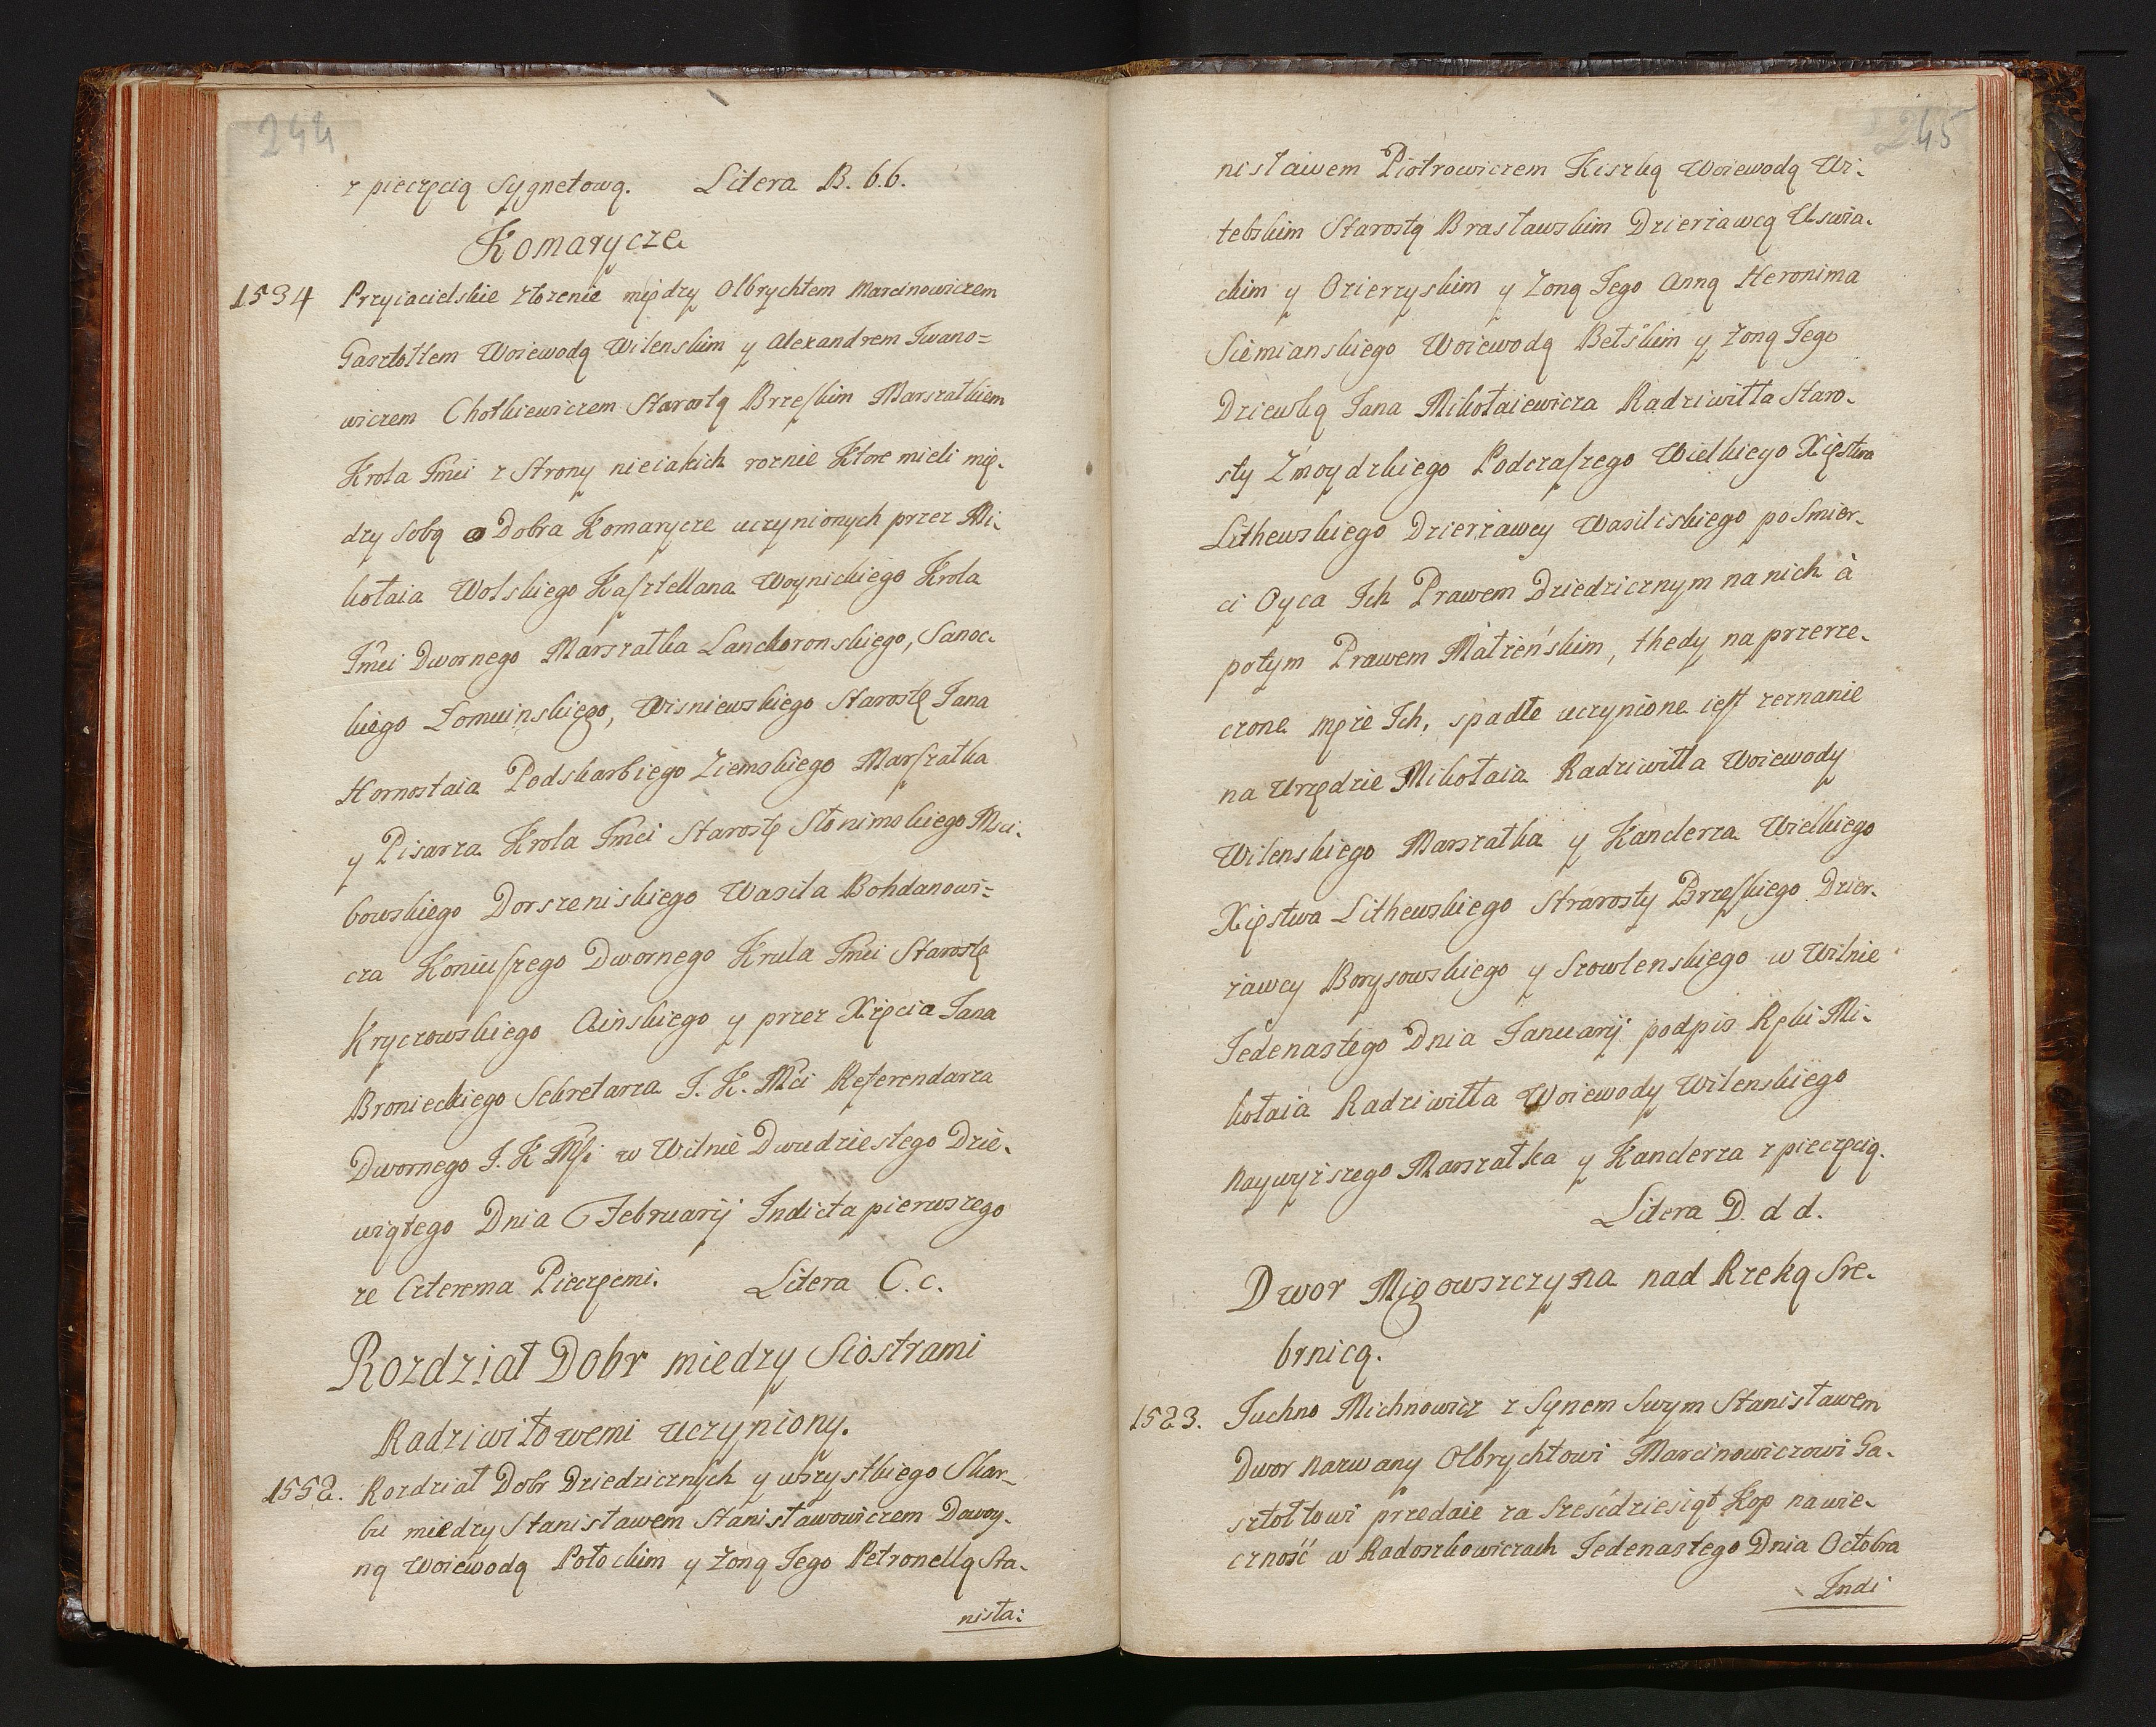 244
z pieczęcią Sygnetową. Litera B. b.b.
Komarycze
1534 Przyiacielskie złożenie między Olbrychtem Marcinowiczem
Gasztołtem Woiewodą Wilenskim y Alexandrem Iwano=
wiczem Chotkiewiczem Starostą Brzeskim Marszałkiem
Krola Jmci z Strony nieiakich roznic Ktore mieli mię-
dzy Sobą o Dobra Komarycze uczynionych przez Mi-
kołaia Wolskiego Kasztellana Woynickiego Krola
Jmci Dwornego Marszałka Lanckoronskiego, Sanoc-
kiego Łomwinskiego, Wisniewskiego Starostę Jana
Hornostaia Podskarbiego Ziemskiego Marszałka
y Pisarza Krola Jmci Starostę Słonimskiego Msci-
bowskiego Dorszeniskiego Wasila Bohdanowi=
cza Koniuszego Dwornego Krula Jmci Starostę
Kryczowskiego Ainskiego y przez Xięcia Jana
Bronieckiego Sekretarza J. K. Mci Referendarza
Dwornego J. K Msci w Wilnie Dwudziestego Dzie-
wiątego Dnia Februarij Indicta pierwszego
ze Czterema Pieczęcmi. Litera C. c.
Rozdział Dobr miedzy Siostrami
Radziwiłowemi uczyniony.
1552. Rozdział Dobr Dziedzicznych y wszystkiego Skar-
bu miedzy Stanisławem Stanisławowiczem Dowoy-
ną Woiewodą Połockim y Zoną Jego Petronellą Sta-
nisła:
245
nisławem Piotrowiczem Kiszką Woiewodą Wi-
tebskim Starostą Brasławskim Dzierżawcą Uswia-
ckim y Ozierzyskim y Zoną Jego Anną Heronima
Siemianskiego Woiewodą Bełskim y Zoną Jego
Dziewką Jana Mikołaiewicza Radziwiłła Staro-
sty Zmoydzkiego Podczaszego Wielkiego Xięstwa
Lithewskiego Dzierżawcy Wasiliskiego po Smier-
ci Oyca Ich Prawem Dziedzicznym na nich à
potym Prawem Małżeńskim, thedy na przerze-
czone męże Ich, spadłe uczynione iest zeznanie
na Urzędzie Mikołaia Radziwiłła Woiewody
Wilenskiego Marszałka y Kanclerza Wielkiego
Xięstwa Lithewskiego Strarosty Brzeskiego Dzier-
żawcy Borysowskiego y Szowlenskiego w Wilnie
Jedenastego Dnia Januarij podpis Ręki Mi-
kołaia Radziwiłła Woiewody Wilenskiego
naywyższego Marszałka y Kanclerza z pieczęcią.
Litera D. d d.
Dwor Migowszczyzna nad Rzeką Sre-
brnicą.
1523. Juchno Michnowicz z Synem Swym Stanisławem
Dwor nazwany Olbrychtowi Marcinowiczowi Ga-
sztołtowi przedaie za Sześćdziesiąt Kop na wie-
czność w Radoszkowiczach Jedenastego Dnia Octobra
Indi